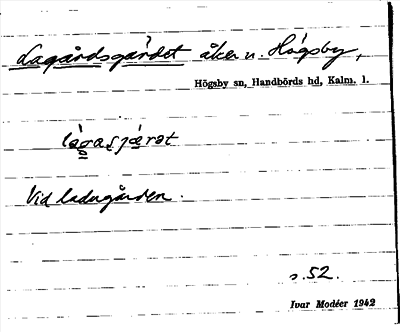 Lagårdsgärdet åker n. Högsby,
Högsby sn, Handbörds hd, Kalm. l.
Vid ladugården.
s. 52.
Ivar Modéer 1942